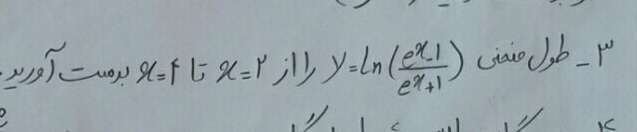 ۳ - طول منحنی y = ln(\frac{e^x - 1}{e^x + 1}) را از x = ۲ تا x = ۴ بدست آورید.